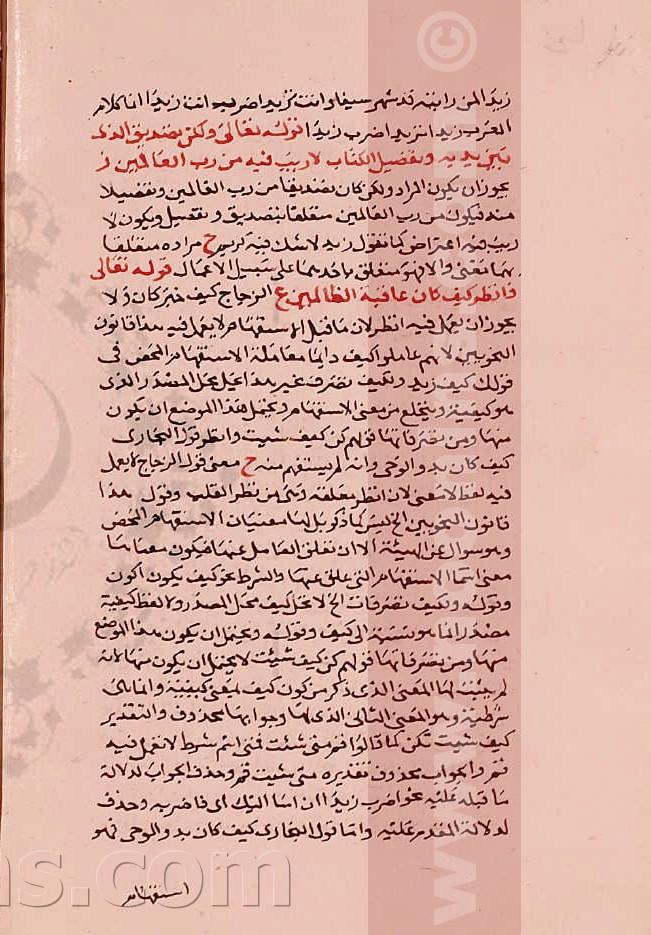 زيدا لمن رايته قد شهر سيفا وانت تريد اضرب انت زيدا انما كلام
العرب زيدا تريد اضرب زيدا قوله تعالى ولكن تصديق الذى
بين يديه وتفصيل الكتاب لا ريب فيه من رب العالمين ز
يجوز ان يكون المراد ولكن كان تصديقا من رب العالمين وتفصيلا
منه فيكون من رب العالمين متعلقا بتصديق وتفصيل ويكون لا
ريب فيه اعتراض كما تقول زيد لا شك فيه كريم ح مراده متعلقا
بهما معنى والا فهو متعلق باحدهما على سبيل الاعمال قوله تعالى
فانظر كيف كان عاقبة الظالمين ع الزجاج كيف خبر كان ولا
يجوز ان يعمل فيه انظر لان ما قبل الاستفهام لا يعمل فيه هذا قانون
النحويين لانهم عاملوا كيف دايما معاملة الاستفهام المحض فى
قولك كيف زيد ولكيف تصرف غير هذا تحل محل المصدر الذى
هو كيفية وينخلع من معنى الاستفهام ويحتمل هذا الموضع ان يكون
منها ومن تصرفاتها قولهم كن كيف شيت وانظر قول البخارى
كيف كان بدو الوحى وانه لم يستفهم منه ح معنى قول الزجاج لا يعمل
فيه لفظا لا معنى لان انظر معلقة وهى من نظر القلب وقول هذا
قانون النحويين الخ ليس كما ذكر بل لها معنيان الاستفهام المحض
وهو سوال عن الهيئة الا ان تعلق العامل عنها فيكون معناها
معنى اسما الاستفهام التى علق عنها والشرط نحو كيف يكون اكون
وقوله ولكيف تصرفات الخ لا تحل كيف محل المصدر ولا لفظ كيفية
مصدر انما هو نسبة الى كيف وقوله ويحتمل ان يكون هذا الموضع
منها ومن تصرفاتها قولهم كن كيف شيت لا يحتمل ان يكون منها لانه
لم يثبت لها المعنى الذى ذكر من كون كيف بمعنى كيفية وانما هى
شرطية وهو المعنى الثانى الذى لها وجوابها محذوف والتقدير
كيف شيت تكن كما قالوا قم متى شئت فمتى اسم شرط لا تعمل فيه
قم والجواب محذوف تقديره متى شيت فقم وحذف الجواب لدلالة
ما قبله عليه نحو اضرب زيدا ان اسا اليك اى فاضربه وحذف
لدلالة المتقدم عليه واما قول البخارى كيف كان بدو الوحى فهو
استفهام
©
ns.com